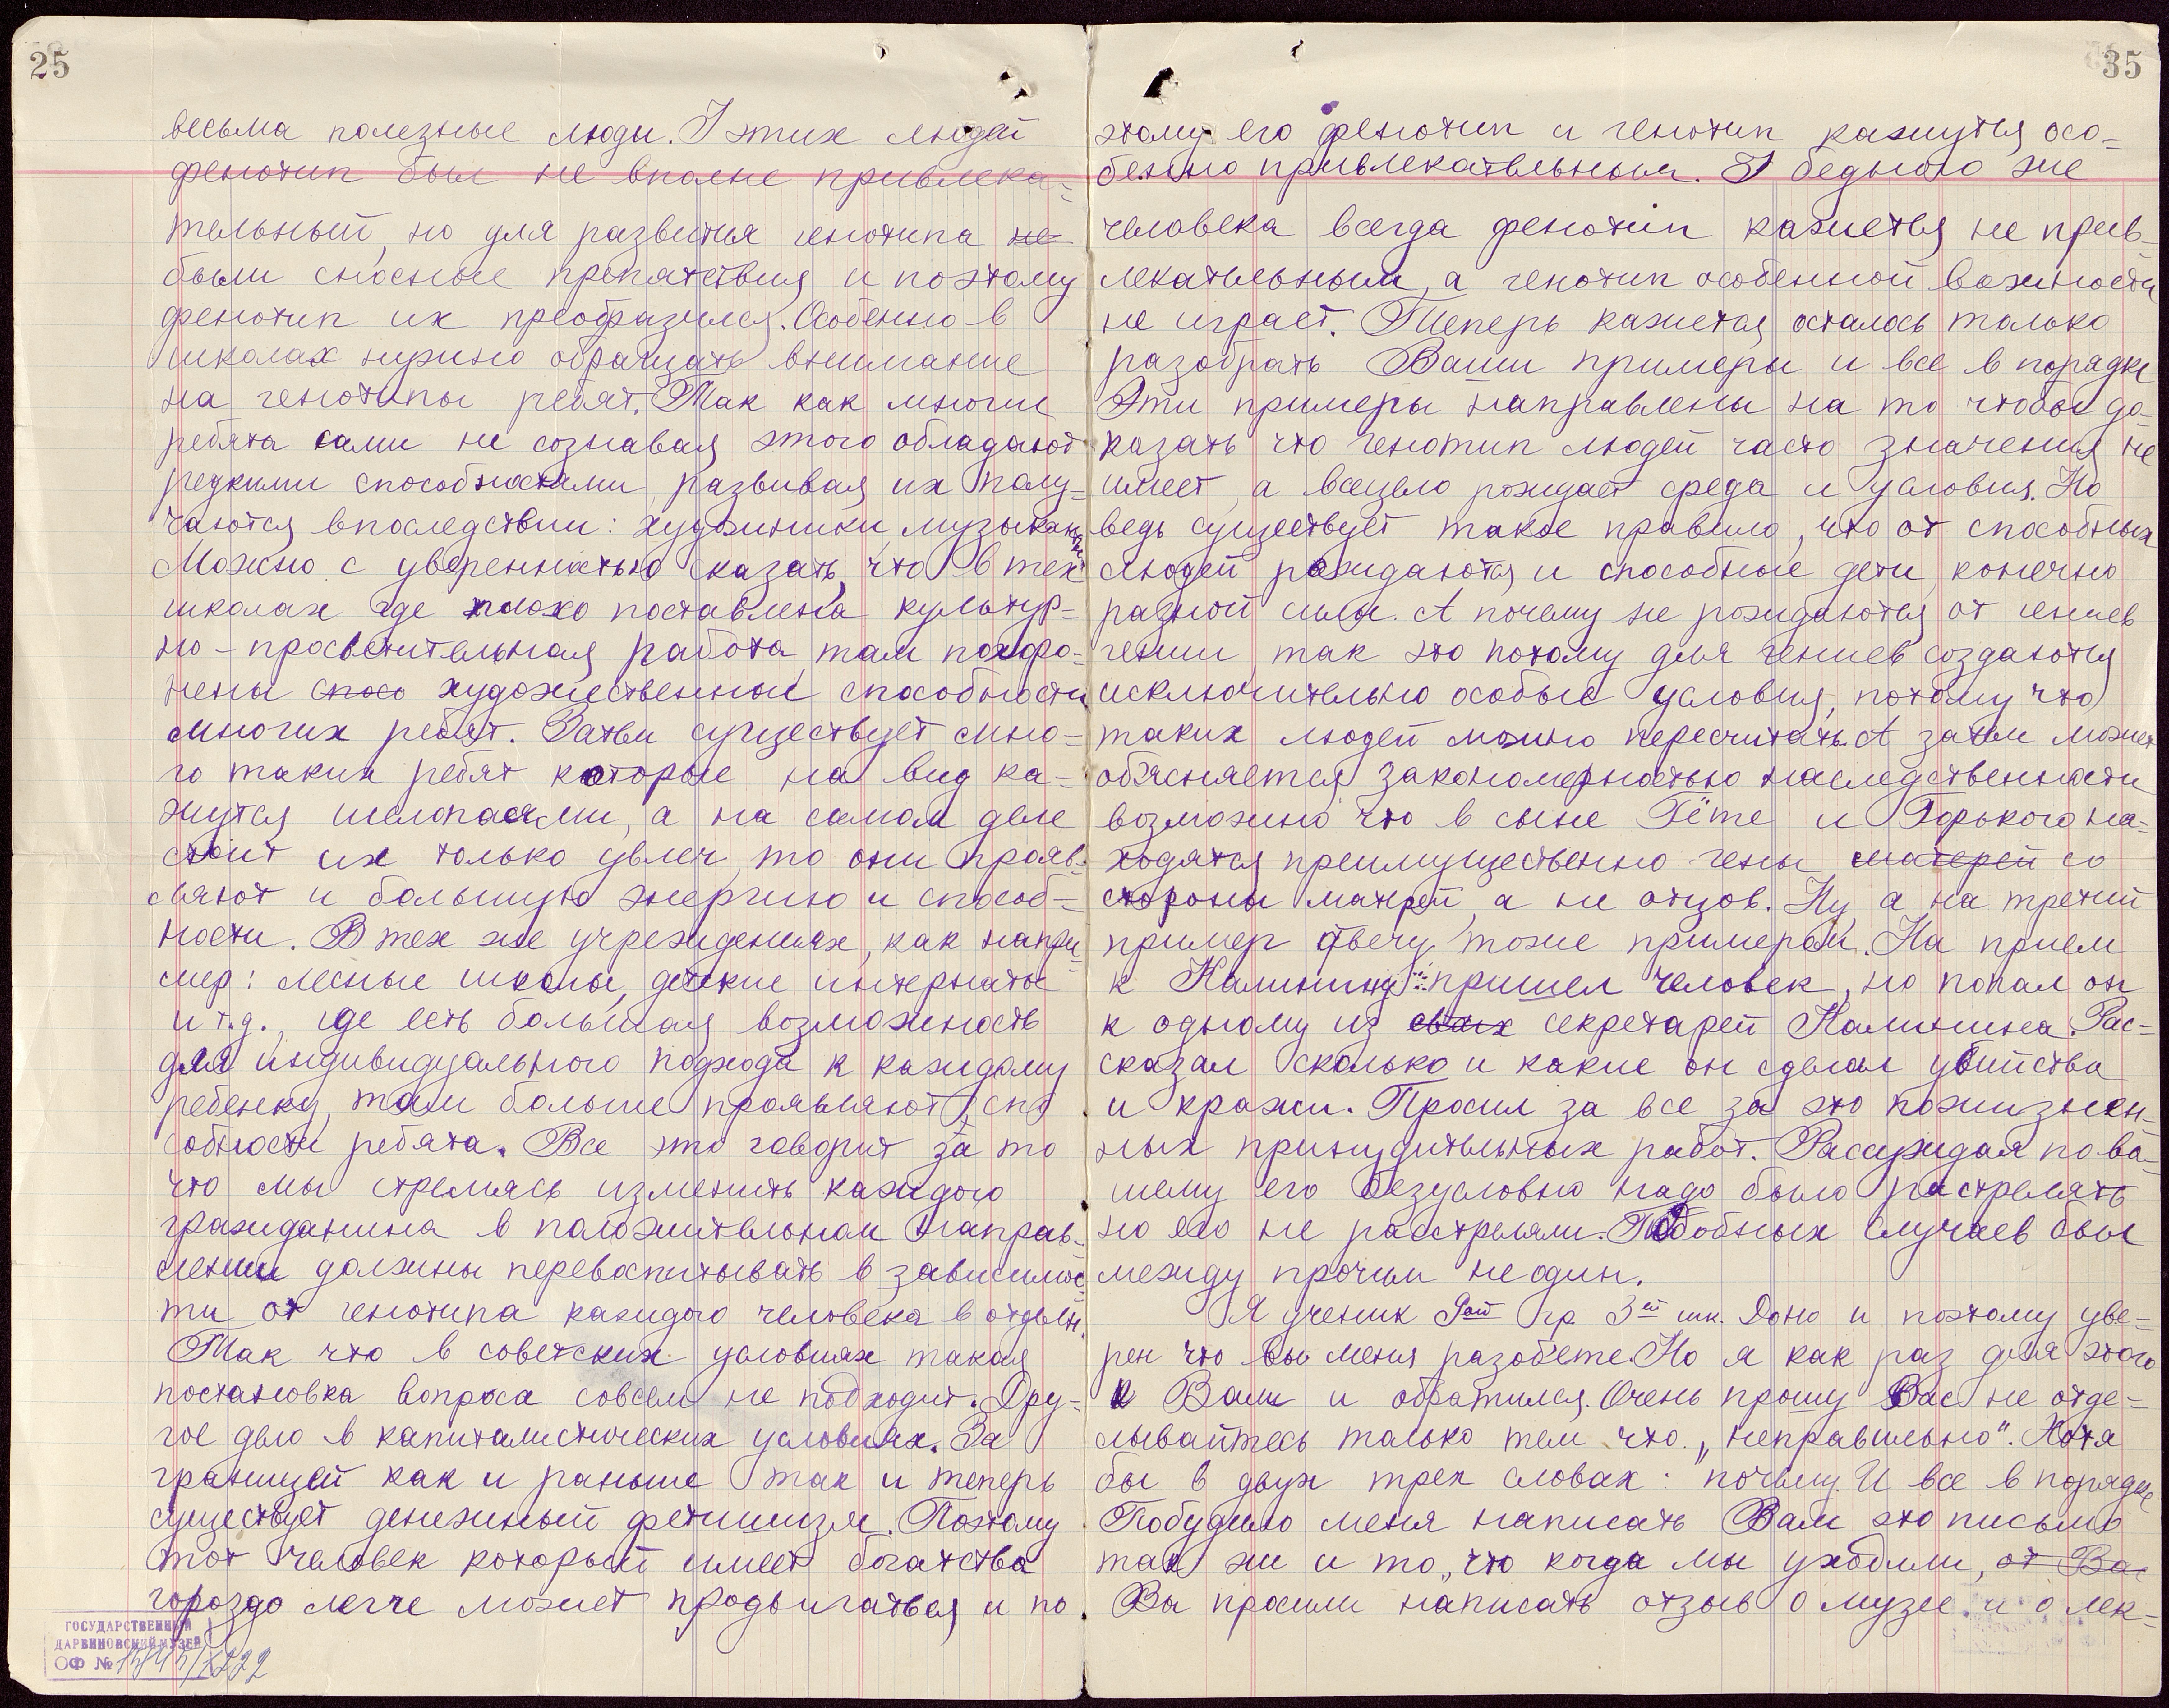 25
весьма полезные люди. У этих людей
фенотип был не вполне привлека-
тельный, но для развития генотипа не
были сносные препятствия и поэтому
фенотип их преобразился. Особенно в
школах нужно обращать внимание
на генотипы ребят. Так как многие
ребята сами не сознавая этого обладают
редкими способностями, развивая их полу-
чаются впоследствии: художники, музыканты
Можно с уверенностью сказать, что в тех
школах где плохо поставлена культур-
но-просветительная работа там похоро-
нены спосо художественные способности
многих ребят. Затем существует мно-
го таких ребят которые на вид ка-
жутся шелопаями, а на самом деле
стоит их только увлеч, то они прояв-
ляют и большую энергию и способ-
ности. В тех же учреждениях, как напри-
мер: лесные школы, детские интернаты
и т.д., где есть большая возможность
для индивидуального подхода к каждому
ребенку, там больше проявляют спо-
собности ребята. Все это говорит за то
что мы стремясь изменить каждого
гражданина в положительном направ-
лении должны перевоспитывать в зависимос-
ти от генотипа каждого человека в отдельн.
Так что в советских условиях такая
постановка вопроса совсем не подходит. Дру-
гое дело в капиталистических условиях. За
границей как и раньше так и теперь
существует денежный фетишизм. Поэтому
тот человек который имеет богатства
гораздо легче может продвигаться и по
ГОСУДАРСТВЕННЫЙ
ДАРВИНОВСКИЙ МУЗЕЙ
ОФ №
35
этому его фенотип и генотип кажутся осо-
бенно привлекательным. У бедного же
человека всегда фенотип кажется не прив-
лекательным, а генотип особенной важности
не играет. Теперь кажется осталось только
разобрать Ваши примеры и все в порядке
Эти примеры направлены на то чтобы до-
казать что генотип людей часто значения не
имеет, а всецело рождает среда и условия. Но
ведь существует такое правило, что от способных
людей рождаются и способные дети, конечно
разной силы. А почему не рождаются от гениев
гении, так это потому для гениев создаются
исключительно особые условия, потому что
таких людей можно пересчитать. А затем может
объясняется закономерностью наследственности
возможно что в сыне Гёте и Горького на-
ходятся преимущественно гены матерей со
стороны матерей, а не отцов. Ну, а на третий
пример отвечу тоже примером. На прием
к Калинину пришел человек, но попал он
к одному из своих секретарей Калинина. Рас-
сказал сколько и какие он сделал убийства
и кражи. Просил за все за это пожизнен-
ных принудительных работ. Рассуждая по ва-
шему его безусловно надо было растрелять
но его не расстреляли. Подобных случаев был
между прочим не один.
Я ученик 9ой гр 3ей шк. Доно и поэтому уве-
рен что вы меня разобьете. Но я как раз для этого
к Вам и обратился. Очень прошу Вас не отде-
лывайтесь только тем что „неправильно“. Хотя
бы в двух трех словах: почему. И все в порядке
Побудило меня написать Вам это письмо
так же и то, что когда мы уходили, от Вас
Вы просили написать отзыв о музее и о лек-